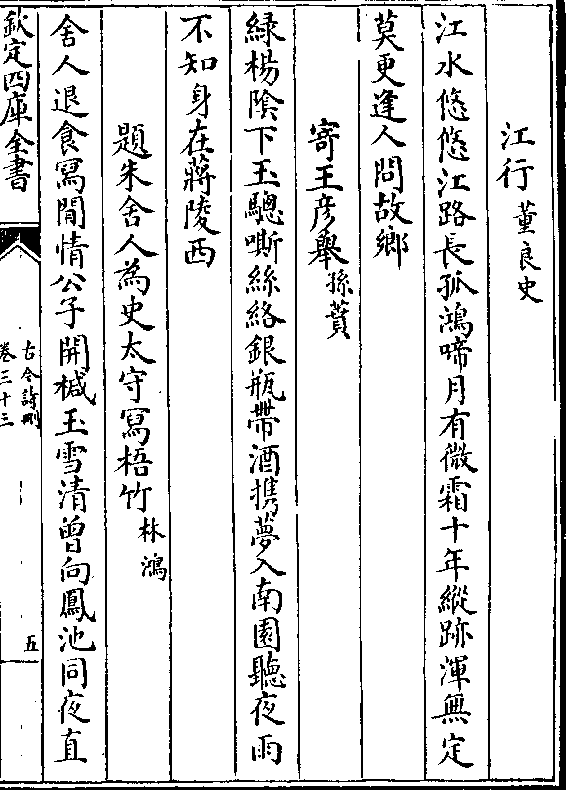 江行 董良史
江水悠悠江路長孤鴻啼月有微霜十年縱跡渾無定
莫更逢人問故鄉
寄王彦舉 孫蕡
緑楊陰下玉驄嘶絲絡銀瓶帶酒携夢入南園聽夜雨
不知身在蔣陵西
題朱舍人為史太守寫梧竹 林鴻
舍人退食寫閒情公子開椷玉雪清曾向鳳池同夜直
欽定四庫全書
古今詩刪
卷三十三
五